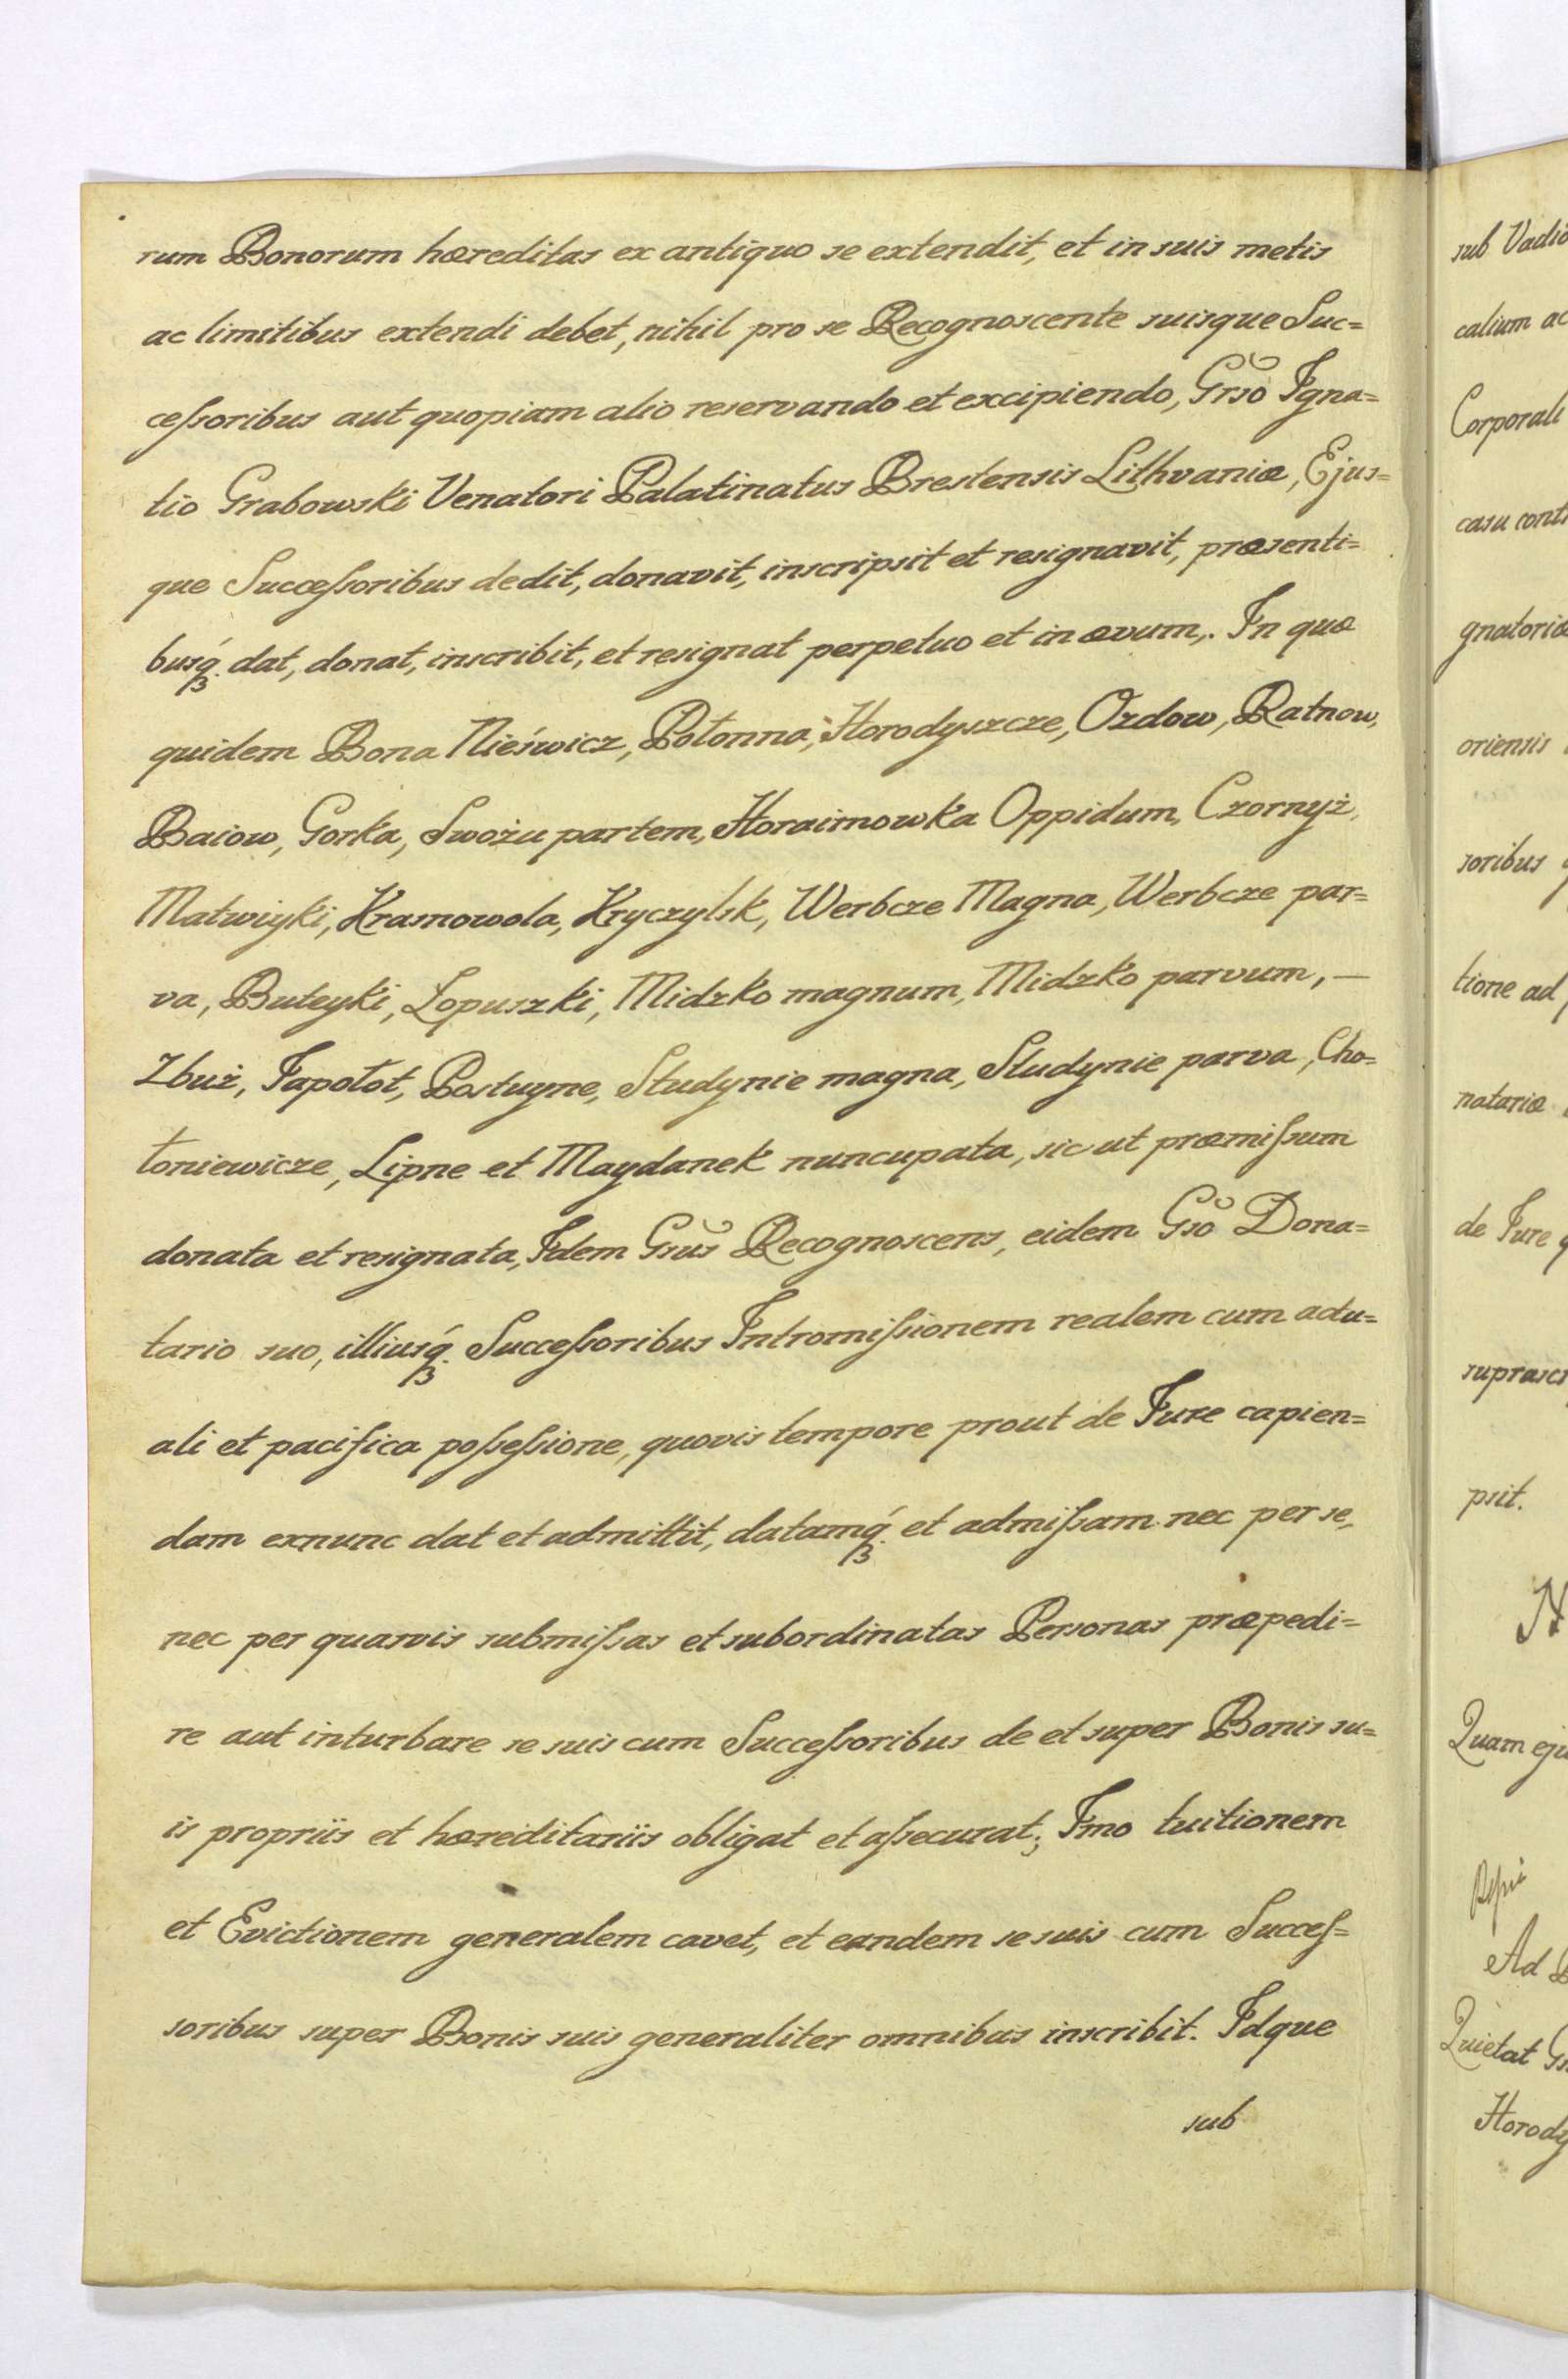 rum Bonorum hæreditas ex antiquo se extendit, et in suis metis
ac limitibus extendi debet, nihil pro se Recognoscente suisque Suc=
ceſsoribus aut quopiam alio reservando et excipiendo, Grso Igna=
tio Grabowski Venatori Palatinatus Brestensis Lithvaniæ, Ejus=
que Succeſsoribus dedit, donavit, inscripsit et resignavit, præsenti=
busq́ꝫ dat, donat, inscribit, et resignat perpetuo et in ævum. In quæ
quidem Bona Nieświcz, Połonna, Horodyszcze, Ozdow, Ratnow,
Baiow, Gorka, Swożu partem, Horaimowka Oppidum, Czornyż,
Matwiyki, Krasnowola, Kryczylsk, Werbcze Magna, Werbcze par=
va, Buteyki, Lopuszki, Midzko magnum, Midzko parvum, —
Zbuż, Japołot, Postuyne, Studynie magna, Studynie parva, Cho=
łoniewicze, Lipne et Maydanek nuncupata, sic ut præmiſsum
donata et resignata, Idem Gsus Recognoscens, eidem Gso Dona=
tario suo, illiusq́ꝫ Succeſsoribus Intromiſsionem realem cum actu=
ali et pacifica poſseſsione, quovis tempore prout de Jure capien=
dam exnunc dat et admittit, datamq́ꝫ et admiſsam nec per se,
nec per quasvis submiſsas et subordinatas Personas præpedi=
re aut inturbare se suis cum Succeſsoribus de et super Bonis su=
is propriis et hæreditariis obligat et aſsecurat; Imo tuitionem
et Evictionem generalem cavet, et eandem se suis cum Succeſ=
soribus super Bonis suis generaliter omnibus inscribit. Idque
sub
sub Vadio
calium ac
Corporali
casu
gnatoriæ
oriensis
soribus
tione ad
natariæ
de Jure
suprascr
psit.
Quam
Ad
Quietat
Horody